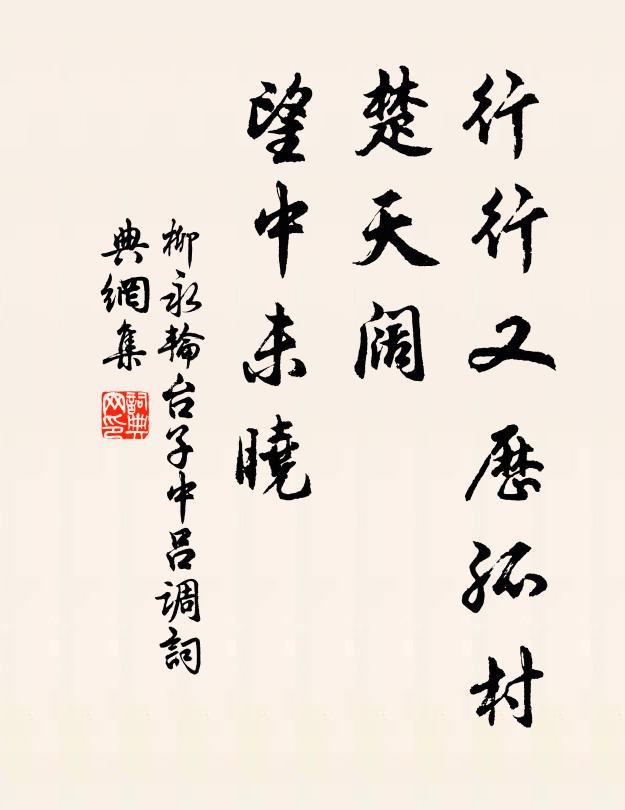 行行又歷孤村
楚天阔
望中未曉
柳永輪台子中吕调詞
典網集
詞典
网印